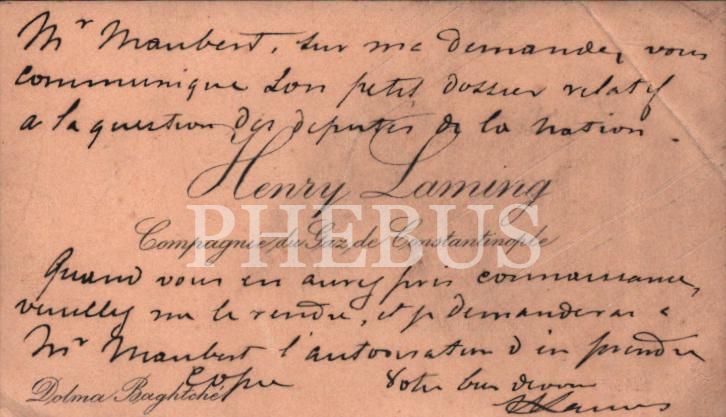 Mr Maubert, sur ma demande, vous
communique son petit dossier relatif
a la question des deputes de la nation.
Henry Laming
PHEBUS
Compagnie du Gaz de Constantinople
Quand vous en aurez pris connaissance,
veuillez me le rendre, et je demanderai a
Mr Maubert l'autorisation d'en prendre
copie Votre bien devoué
Dolma Baghtché